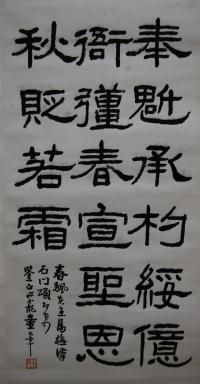 奉魁承杓綏億
衙彊春宣聖恩
秋貶若霜
春 先生
石门頌